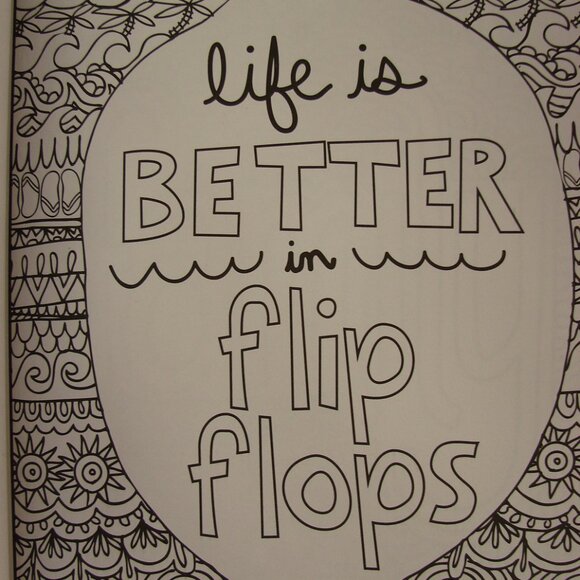 life is
BETTER
in
flip
flops